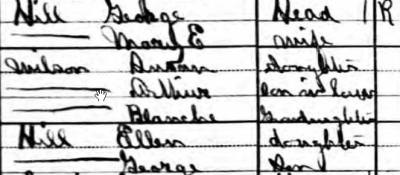 Hill George Head 1 R
—— Mary E Wife
Wilson Susan Daughter
—— Arthur Son in Law
—— Blanche Grandaughter
Hill Ellen daughter
—— George Son